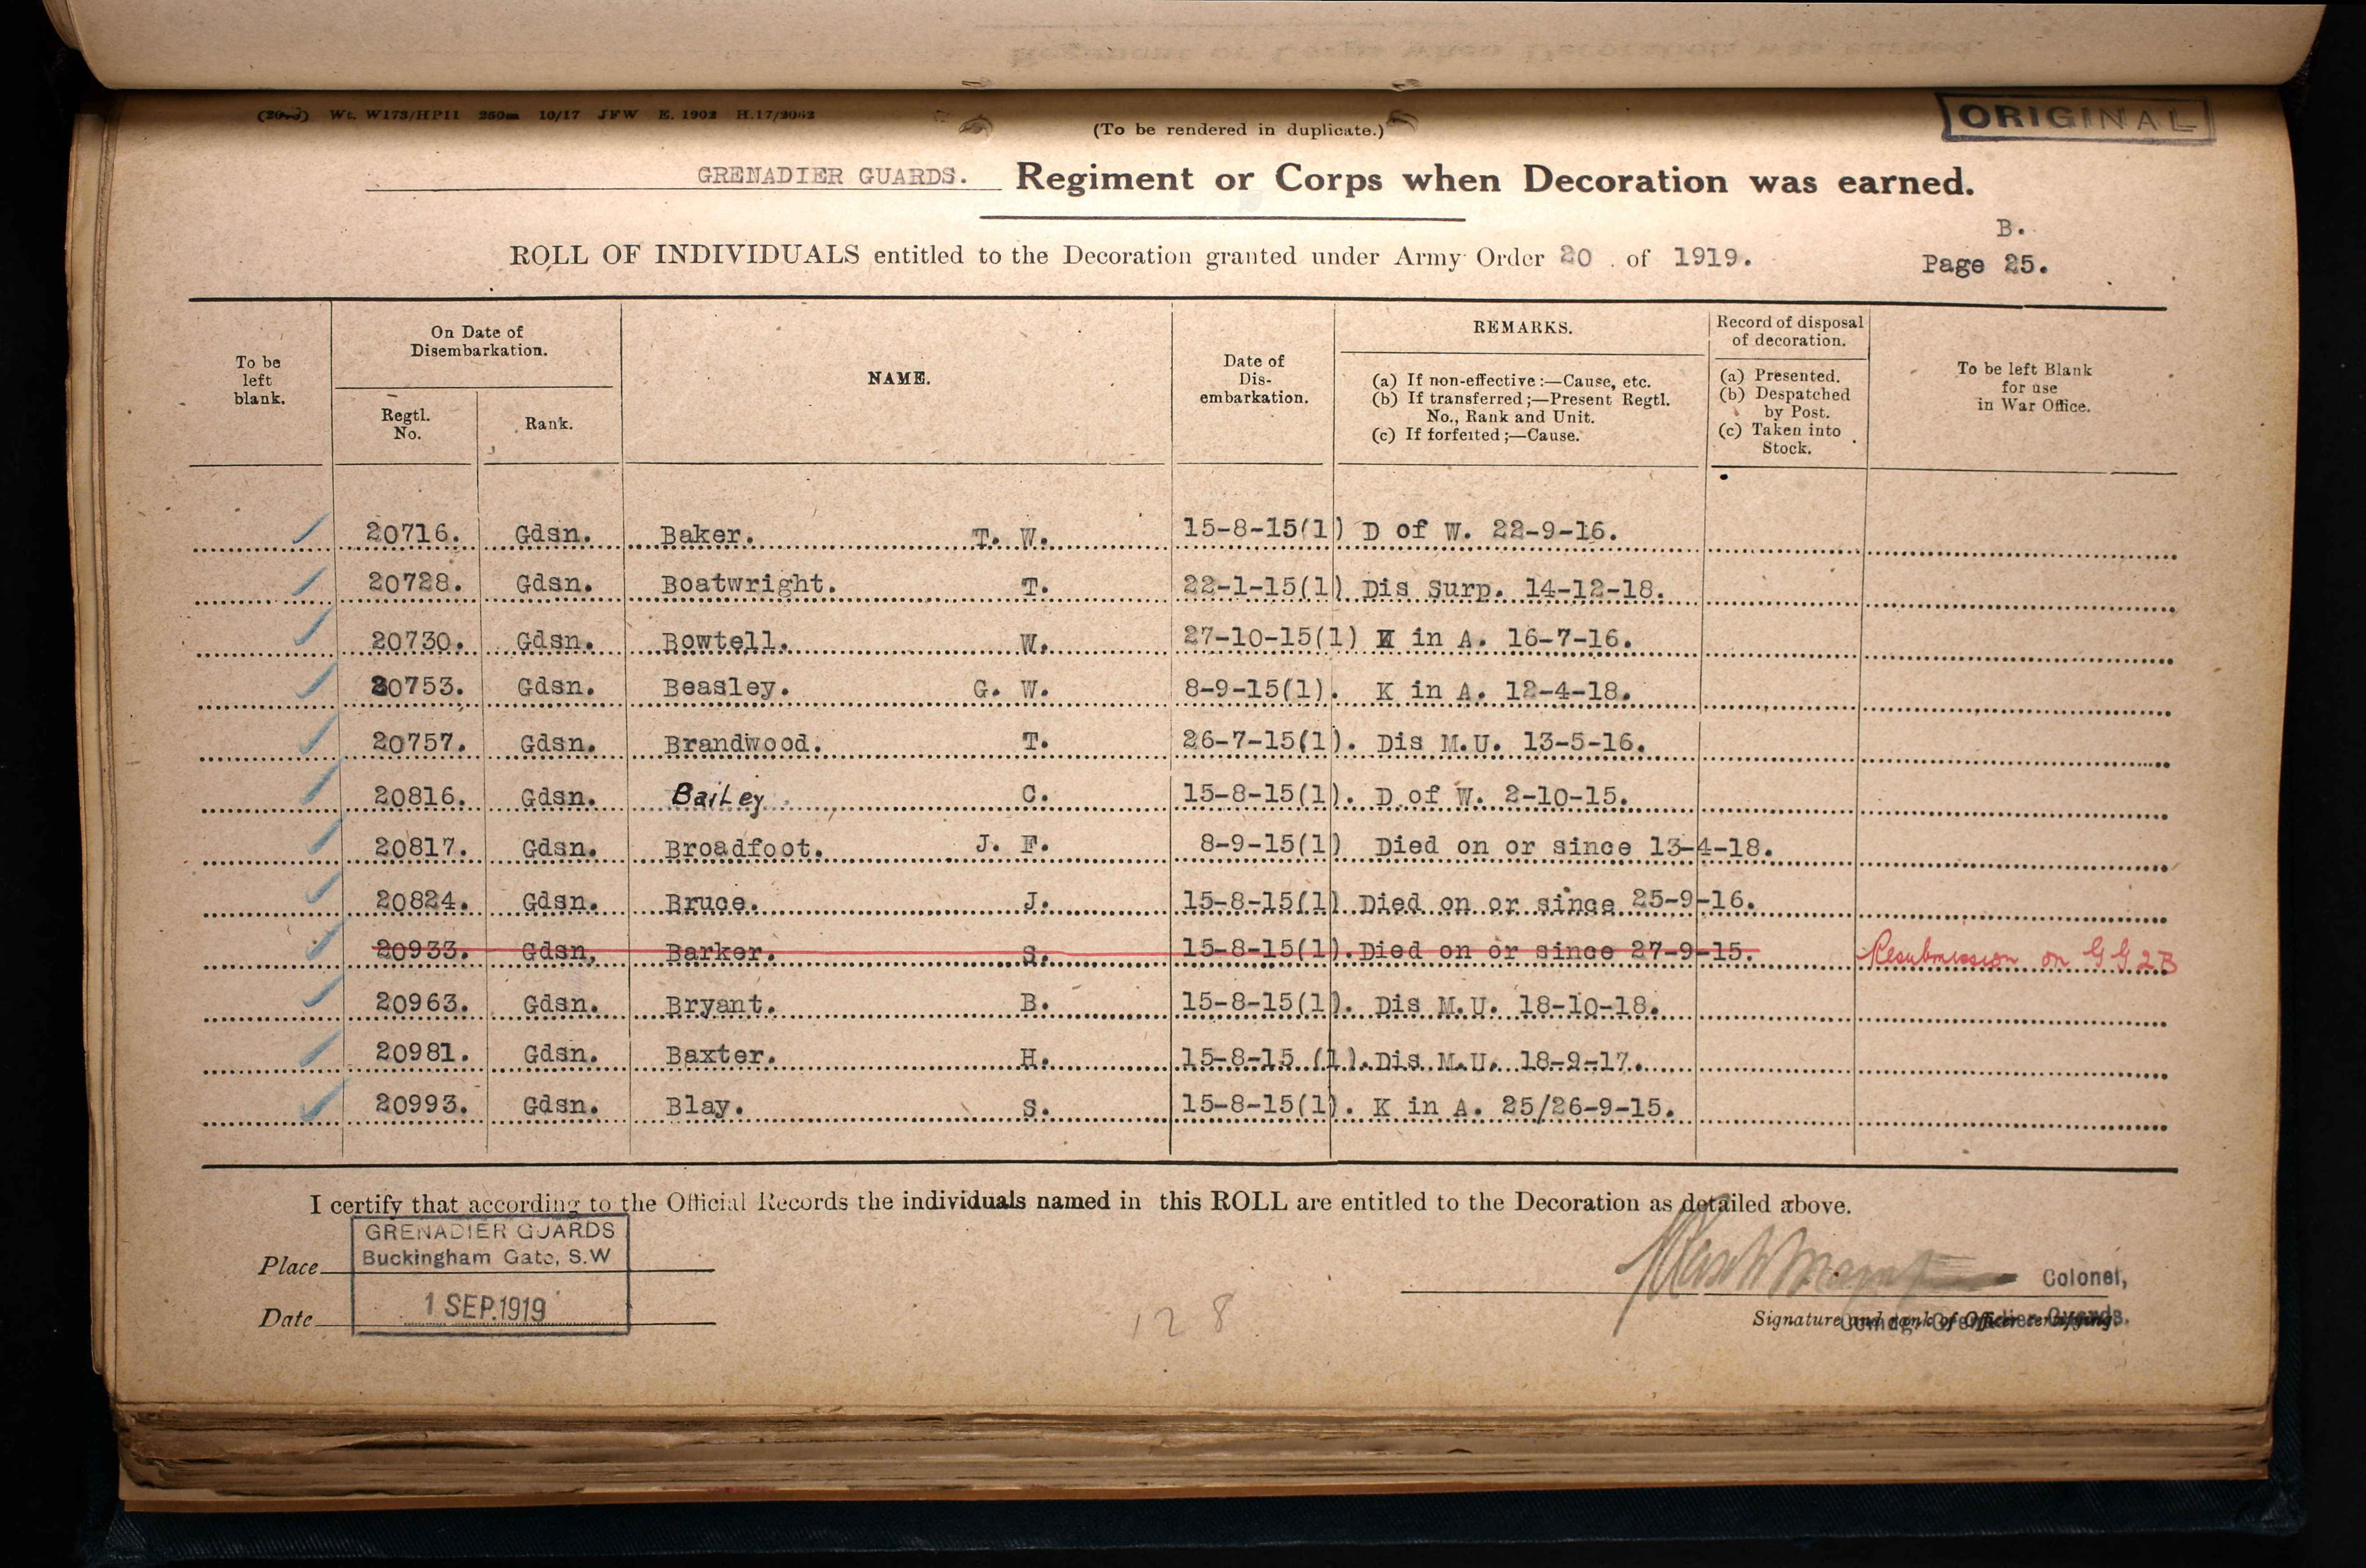 (20473) Wt. W173/HP11 250m 10/17 JFW E. 1902 H.17/2062
(To be rendered in duplicate.)
ORIGINAL
GRENADIER GUARDS. Regiment or Corps when Decoration was earned.
B.
ROLL OF INDIVIDUALS entitled to the Decoration granted under Army Order 20 of 1919. Page 25.
To be left blank.
On Date of Disembarkation.
Regtl. No.
Rank.
NAME.
Date of Dis-embarkation.
REMARKS.
(a) If non-effective:—Cause, etc.
(b) If transferred;—Present Regtl. No., Rank and Unit.
(c) If forfeited;—Cause.
Record of disposal of decoration.
(a) Presented.
(b) Despatched by Post.
(c) Taken into Stock.
To be left Blank for use in War Office.
20716. Gdsn. Baker. T. W. 15-8-15(1) D of W. 22-9-16.
20728. Gdsn. Boatwright. T. 22-1-15(1) Dis Surp. 14-12-18.
20730. Gdsn. Bowtell. W. 27-10-15(1) K in A. 16-7-16.
20753. Gdsn. Beasley. G. W. 8-9-15(1). K in A. 12-4-18.
20757. Gdsn. Brandwood. T. 26-7-15(1). Dis M.U. 13-5-16.
20816. Gdsn. Bailey C. 15-8-15(1). D of W. 2-10-15.
20817. Gdsn. Broadfoot. J. F. 8-9-15(1) Died on or since 13-4-18.
20824. Gdsn. Bruce. J. 15-8-15(1) Died on or since 25-9-16.
20933. Gdsn. Barker. S. 15-8-15(1). Died on or since 27-9-15. Resubmission on GG 2B
20963. Gdsn. Bryant. B. 15-8-15(1). Dis M.U. 18-10-18.
20981. Gdsn. Baxter. H. 15-8-15 (1). Dis M.U. 18-9-17.
20993. Gdsn. Blay. S. 15-8-15(1). K in A. 25/26-9-15.
I certify that according to the Official Records the individuals named in this ROLL are entitled to the Decoration as detailed above.
GRENADIER GUARDS
Place Buckingham Gate, S.W
Colonel,
Date 1 SEP.1919
128
Signature and rank of Officer certifying.
Comdg. Grenadier Guards.